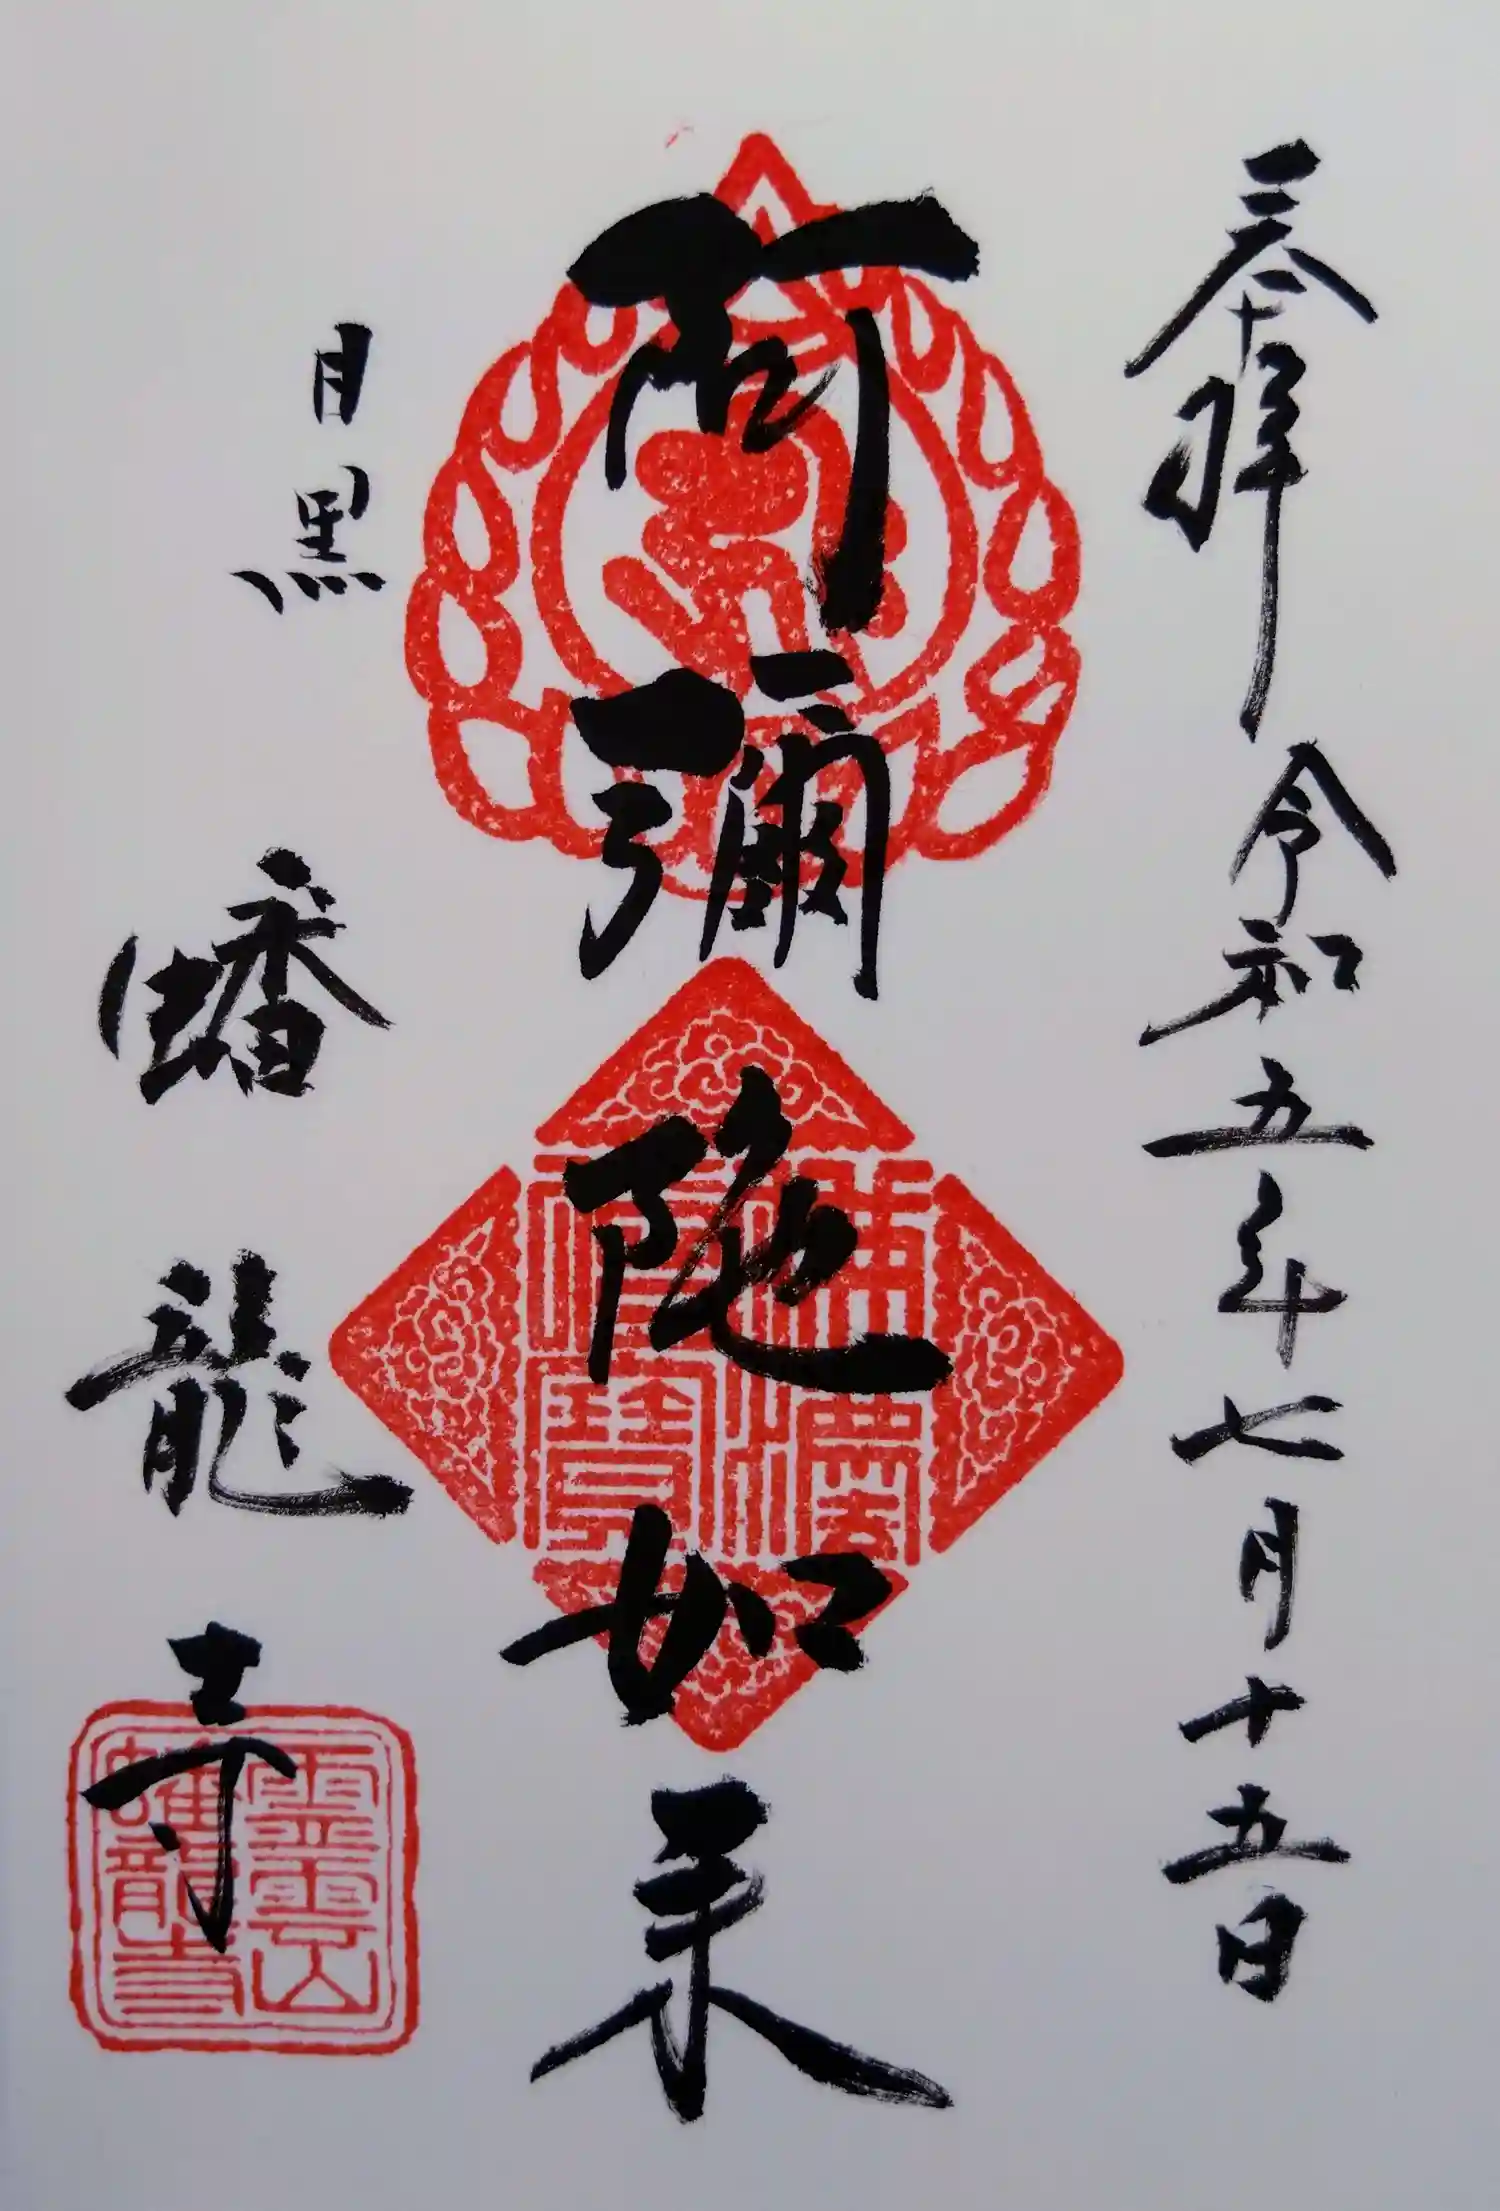 奉拝 令和五年七月十五日
阿彌陀如来
目黒 蟠龍寺
佛法僧寶
霊雲山
蟠龍寺